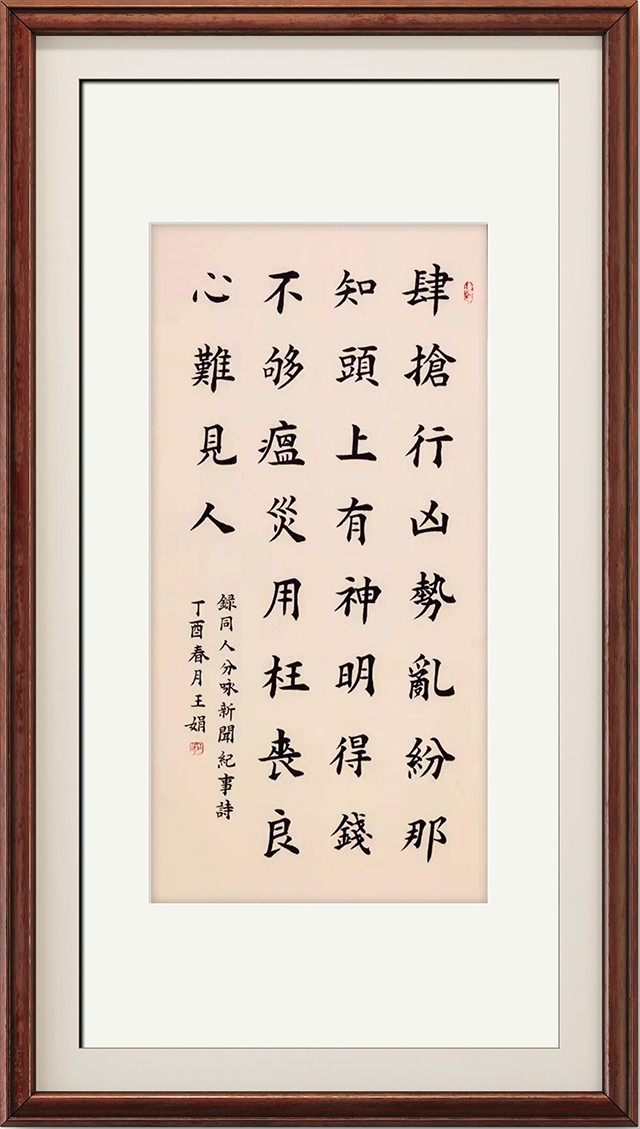 肆搶行凶勢亂紛那
知頭上有神明得錢
不够瘟災用枉喪良
心難見人
録同人分咏新聞紀事詩
丁酉春月王娟